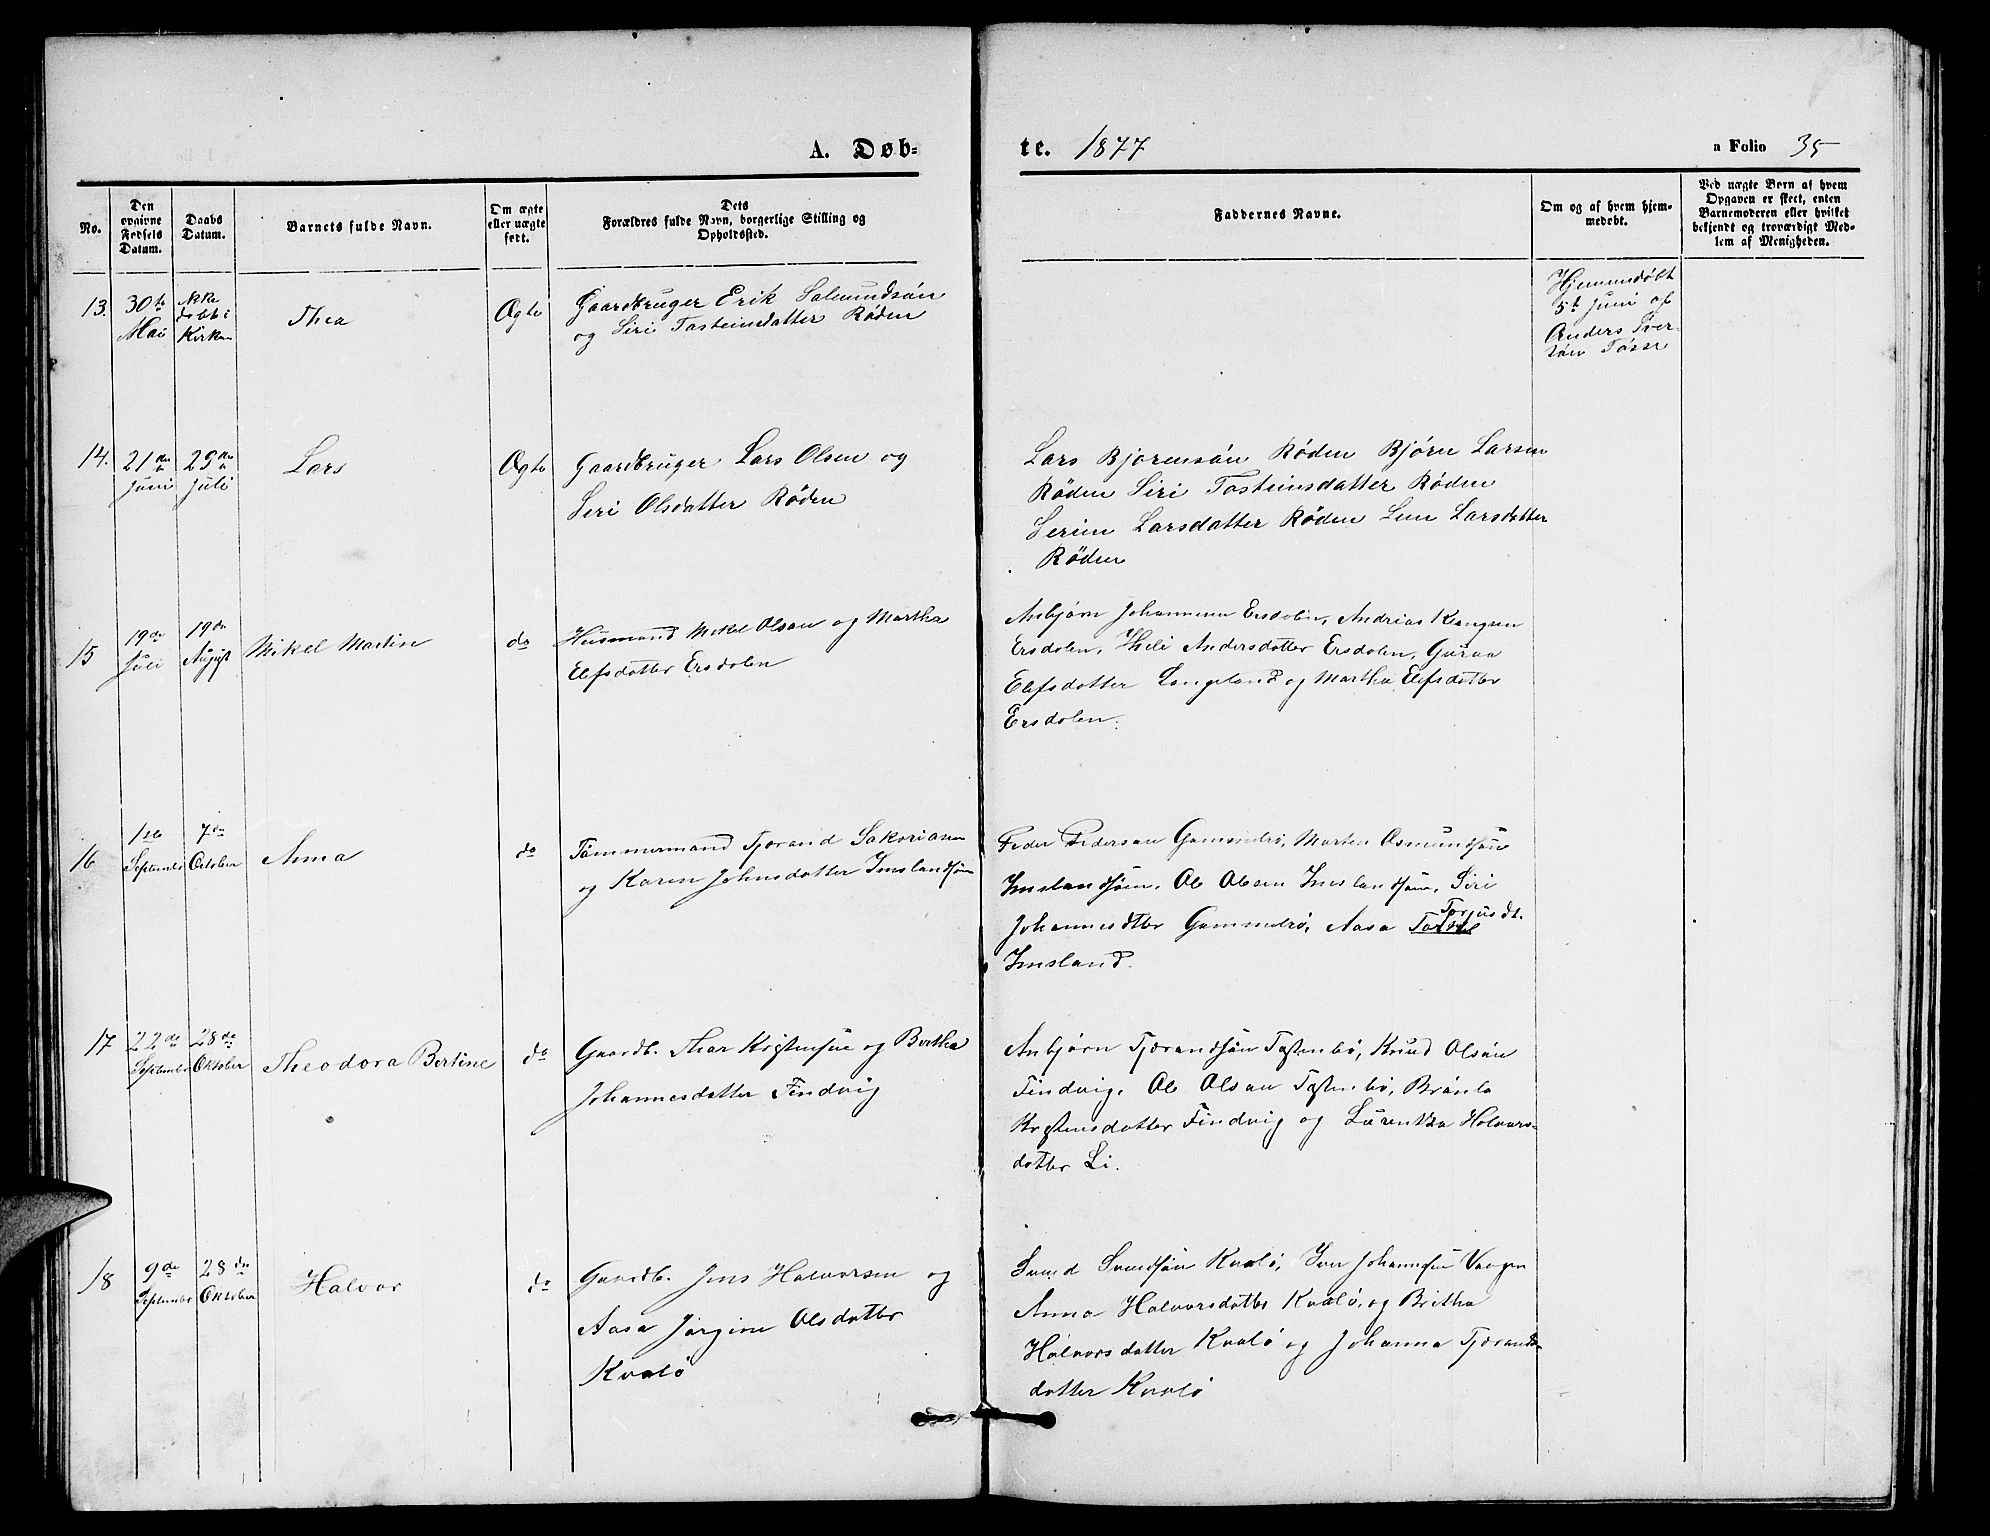 A. Døb-
te. 1877
a Folio 35
No.
Den
opgivne
Fødsels
Datum.
Daabs
Datum.
Barnets fulde Navn.
Om ægte
eller uægte
født.
Dets
Forældres fulde Navn, borgerlige Stilling og
Opholdssted.
Faddernes Navne.
Om og af hvem hjem-
medøbt.
Ved uægte Børn af hvem
Opgaven er skeet, enten
Barnemoderen eller hvilket
bekjendt og troværdigt Med-
lem af Menigheden.
13.
30te
Mai
Ikke
døbt i
Kirken
Thea
Ægte
Gaardbruger Erik Salmundsön
og Siri Tasteinsdatter Röden
Hjemmedöbt
5te Juni af
Anders Iver-
sön Tösse
14.
21de
Juni
29de
Juli
Lars
Ægte
Gaardbruger Lars Olsen og
Seri Olsdatter Röden
Lars Bjørensön Röden Bjørn Larsen
Röden Siri Tasteinsdatter Röden
Serine Larsdatter Röden Larsdatter
Röden
15
19de
Juli
19de
August
Mikel Martin
do
Husmand Mikel Olsen og Martha
Elefsdatter Ersdalen
Asbjørn Johannesen Ersdalen, Andrias
Ersdalen, Andersdatter Ersdalen, Guroa
Elefsdatter Langeland og Martha Elefsdatter
Ersdalen.
16
1ste
September
7de
October
Anna
do
Tømmermand Tjørand Sakariasen
og Karen Johnsdatter Imslandsjöen
Peder Pedersen Gammelrö, Marten Osmundsen
Imslandsjöen, Ole Olsen Imslandsjöen, Siri
Johannesdtter Gammelrö, Aasa Torjusdt.
Imsland.
17
22de
September
28de
Oktober
Theodora Bertine
do
Gaardb. Thor Kristensen og Bertha
Johannesdatter Findvig
Asbjørn Tjørandsön Tastenbö, Knud Olsön
Findvig, Ole Olsen Tastenbö, Brønla
Kristensdatter Findvig og Lurentza Holvors-
datter Li.
18
9de
September
28de
Oktober
Halvor
do
Gaardb. Jens Halvorsen og
Aasa Jørgine Olsdatter
Kvalö
Svend Svendsön Kvalö, Iver Johannesen Vaagen
Anna Halvorsdatter Kvalö, og Britha
Halvorsdatter Kvalö og Johanna Tjørands-
datter Kvalö